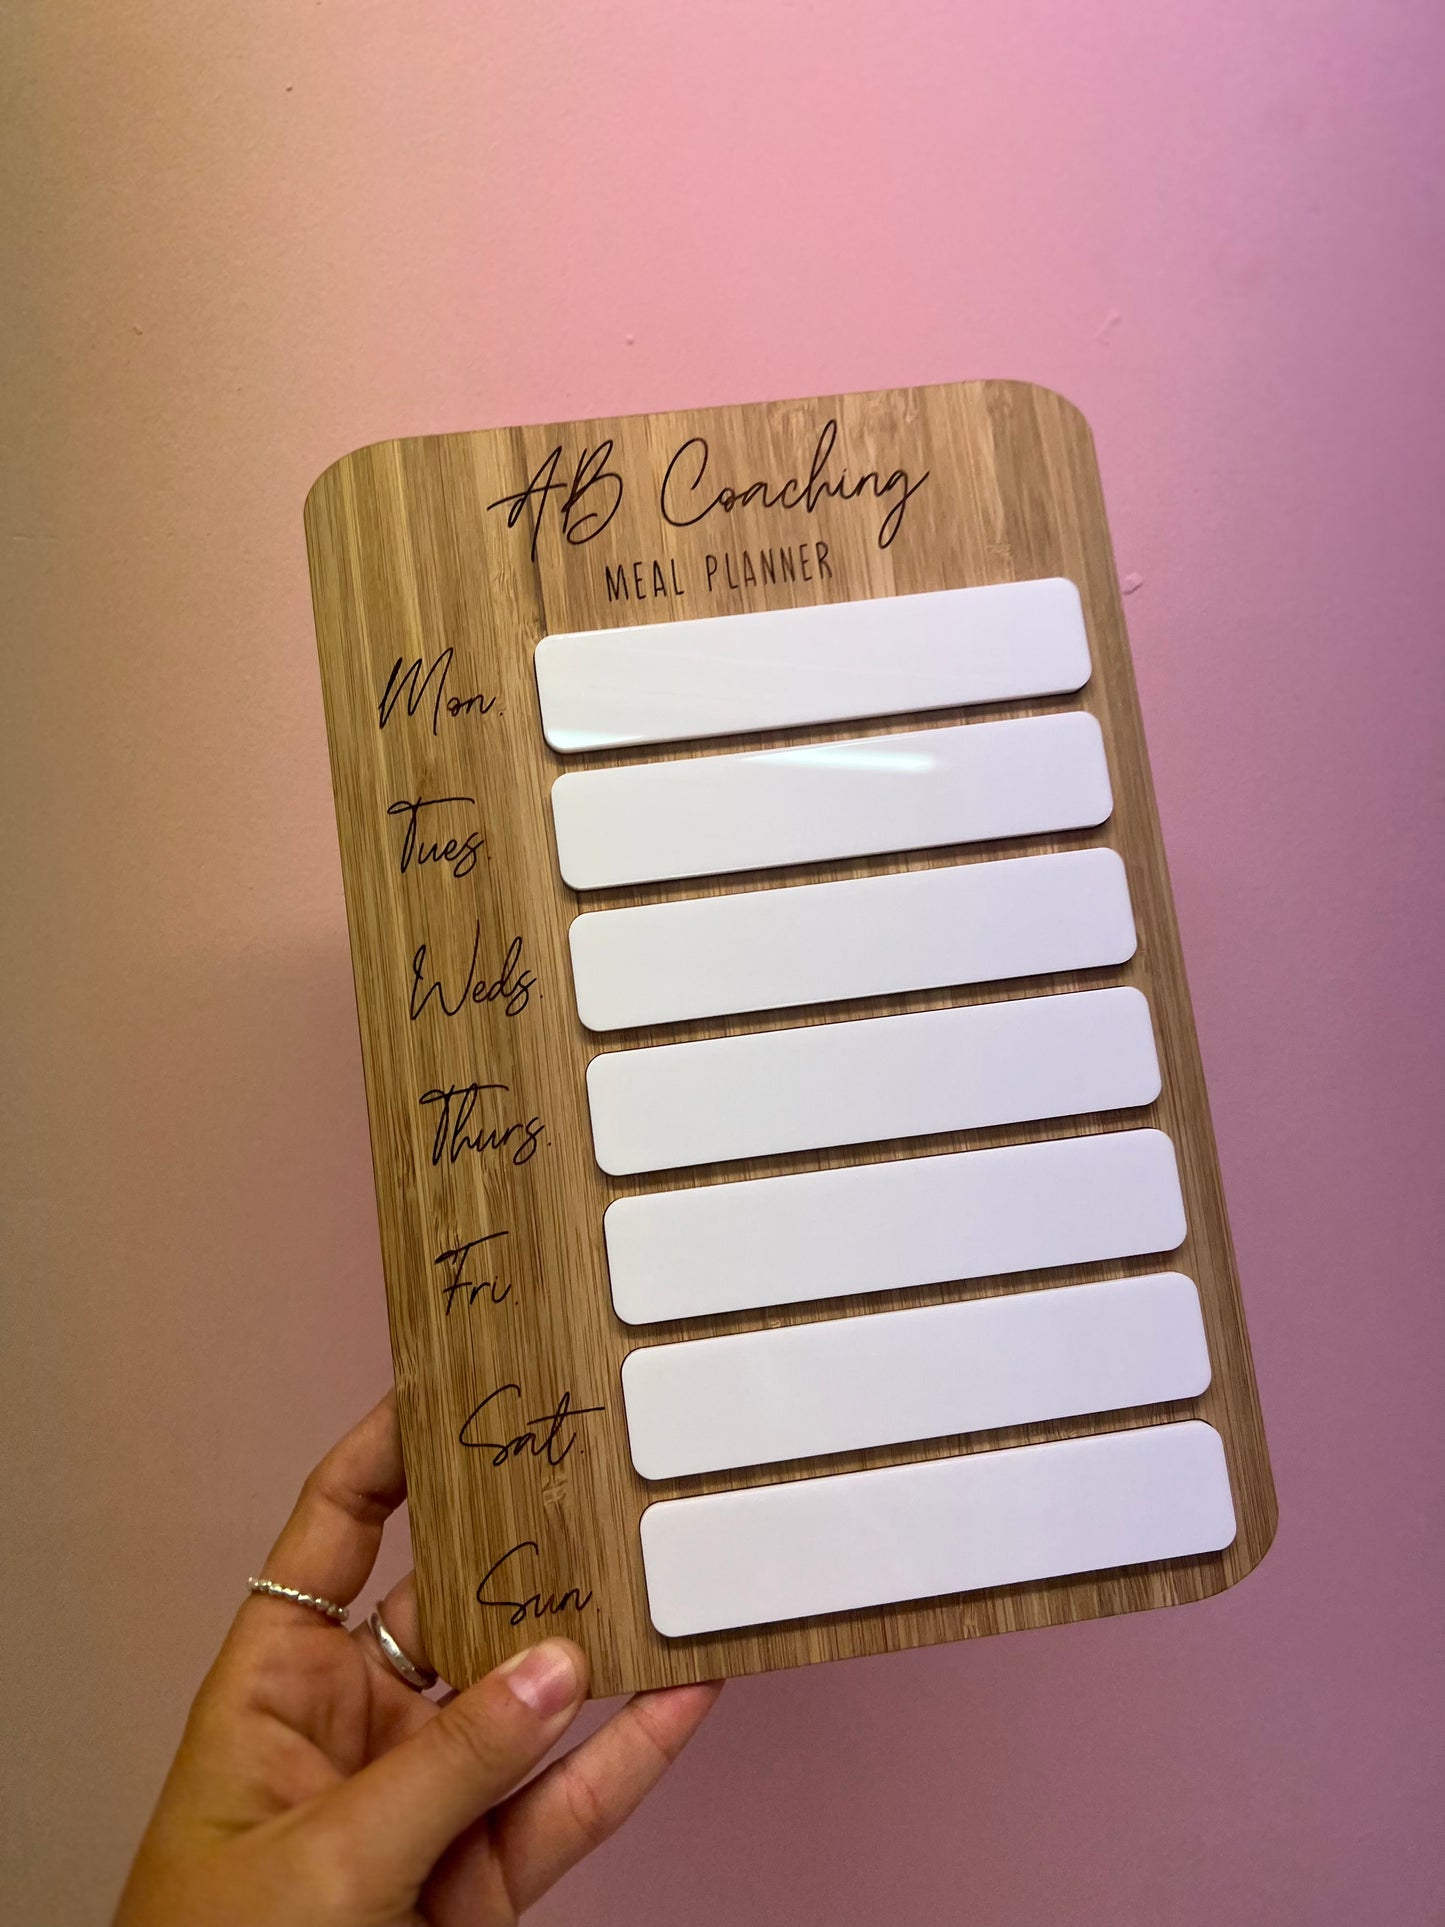 AB Coaching
MEAL PLANNER
Mon.
Tues.
Weds.
Thurs.
Fri.
Sat.
Sun.